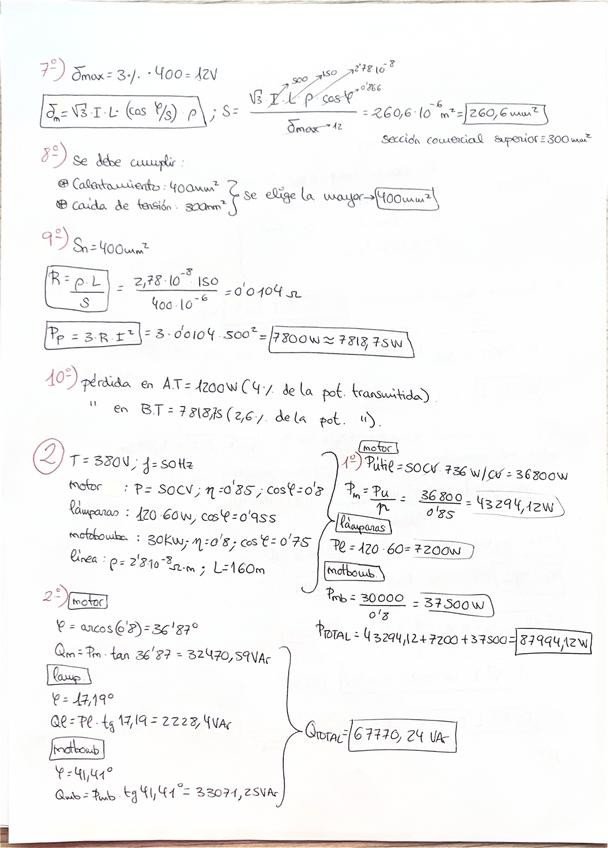 7º) δmax = 3·/. · 400 = 12V
500 150 2'78·10⁻⁸
δm = √3 · I · L · (cos φ/S) · ρ ; S = √3 I L ρ cosφ → 0'866 / δmax → 12 = 260,6·10⁻⁶ m² = 260,6 mm²
sección comercial superior = 300 mm²
8º) Se debe cumplir:
⊛ Calentamiento: 400mm²
⊛ caída de tensión: 300mm² } se elige la mayor → 400mm²
9º) Sn = 400mm²
R = ρ·L / S = 2,78·10⁻⁸ · 150 / 400·10⁻⁶ = 0'0104 Ω
Pp = 3·R·I² = 3·0'0104·500² = 7800W ≈ 7818,75W
10º) pérdida en A.T = 1200W (4·/. de la pot. transmitida).
" en B.T = 7818,75 (2,6·/. de la pot. ").
2 T = 380V ; f = 50Hz
motor : P = 50CV ; η = 0'85 ; cosφ = 0'8
lámparas : 120·60W, cosφ = 0'955
motobomba : 30KW ; η = 0'8 ; cosφ = 0'75
línea : ρ = 2'8·10⁻⁸ Ω·m ; L = 160m
motor
1º) Pútil = 50CV · 736 W/CV = 36800W
Pm = Pu / η = 36800 / 0'85 = 43294,12W
lámparas
Pl = 120·60 = 7200W
motbomb
Pmb = 30000 / 0'8 = 37500W
PTOTAL = 43294,12 + 7200 + 37500 = 87994,12W
2º) motor
φ = arcos(0'8) = 36'87º
Qm = Pm · tan 36'87 = 32470,59VAr
lamp
φ = 17,19º
Ql = Pl · tg 17,19 = 2228,4VAr
motbomb
φ = 41,41º
Qmb = Pmb · tg 41,41º = 33071,25VAr
QTOTAL = 67770,24 VAr